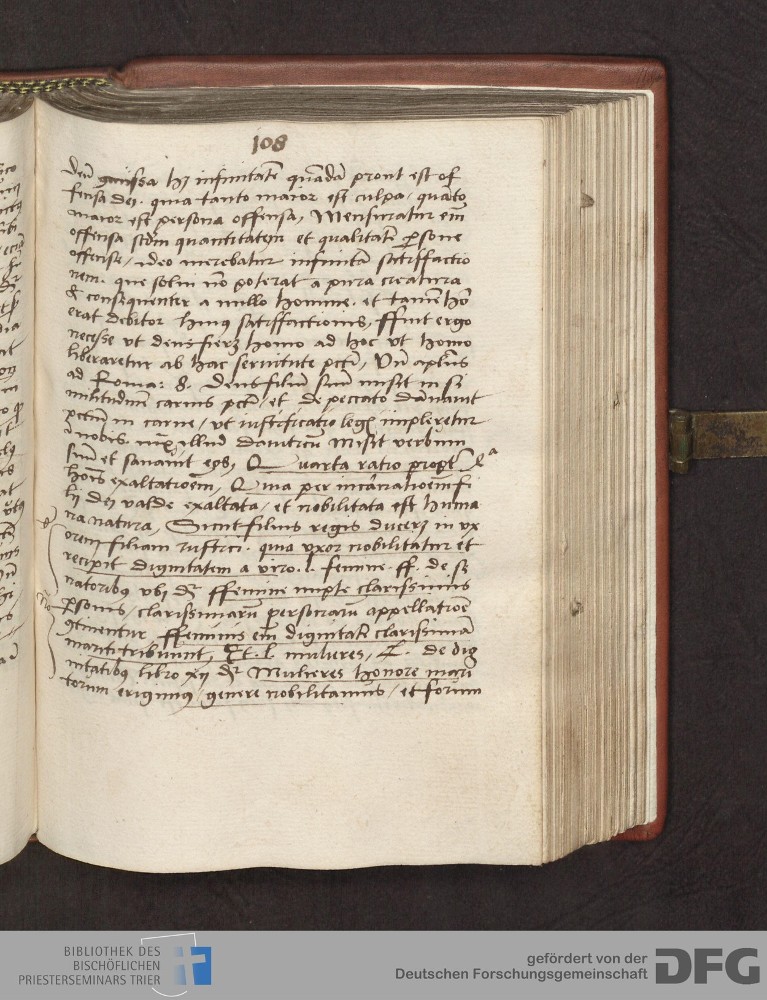 108
deū hȝ infinitatē quādā prout est of
fensa dei. quia tanto maior est culpa, quāto
maior est persona offensa, Mensuratur em̄
offensa scdm̄ quantitatem et qualitatē ꝑsone
offense, ideo merebatur infinitā satisfactio
nem. que solui nō poterat a pura creatura
& consequenter a nullo homine. et tamē hō
erat debitor huius satisfactionis, ffuit ergo
necesse vt deus fieret homo ad hoc vt homo
liberaretur ab hac seruitute pctī, Vn̄ aplūs
ad Roma: 8. Deus filiū suū misit in si
militudinem carnis pctī, et de peccato dānauit
pctm̄ in carne, vt iustificatio legis impleretur
ī nobis. illud dauiticū Misit verbum
suū et sanauit eos, Quarta ratio propt̄
hoīs exaltatioem, Quia per incarnatioem fi
lij dei valde exaltata, et nobilitata est huma
na natura, Sicut filius regis ducens in vx
orem filiam rustici. quia vxor nobilitatur et
recipit dignitatem a viro. l. femine. ff. de se
natoribꝰ vbi dr̄ ffemine nupte clarissimis
ꝑsonis, clarissimarū personarū appellatioe
ꝯtinentur, ffeminis em̄ dignitatē clarissimā
mariti tribuunt, Et. l. mulieres, C. de dig
nitatibꝰ libro xij dr̄ Mulieres honore mari
torum erigimꝰ, genere nobilitamus, et forum
BIBLIOTHEK DES
BISCHÖFLICHEN
PRIESTERSEMINARS TRIER
gefördert von der
Deutschen Forschungsgemeinschaft
DFG